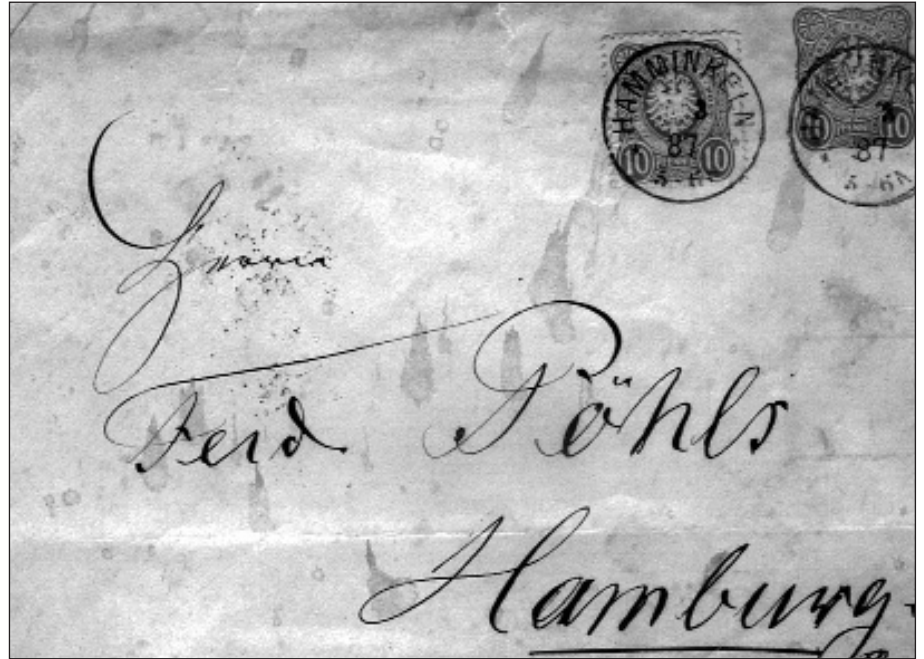 HAMMINKELN
3
87
10 10
3
10 10
87
Herrn
Ferd Pöhls
Hamburg